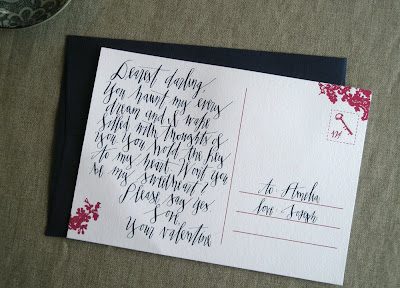 Dearest darling
You haunt my every
dream and I wake
filled with thoughts of
you. You hold the key
to my heart. Won't you
be my sweetheart?
Please say yes
Love,
Your Valentine
to Amelia
love Joseph